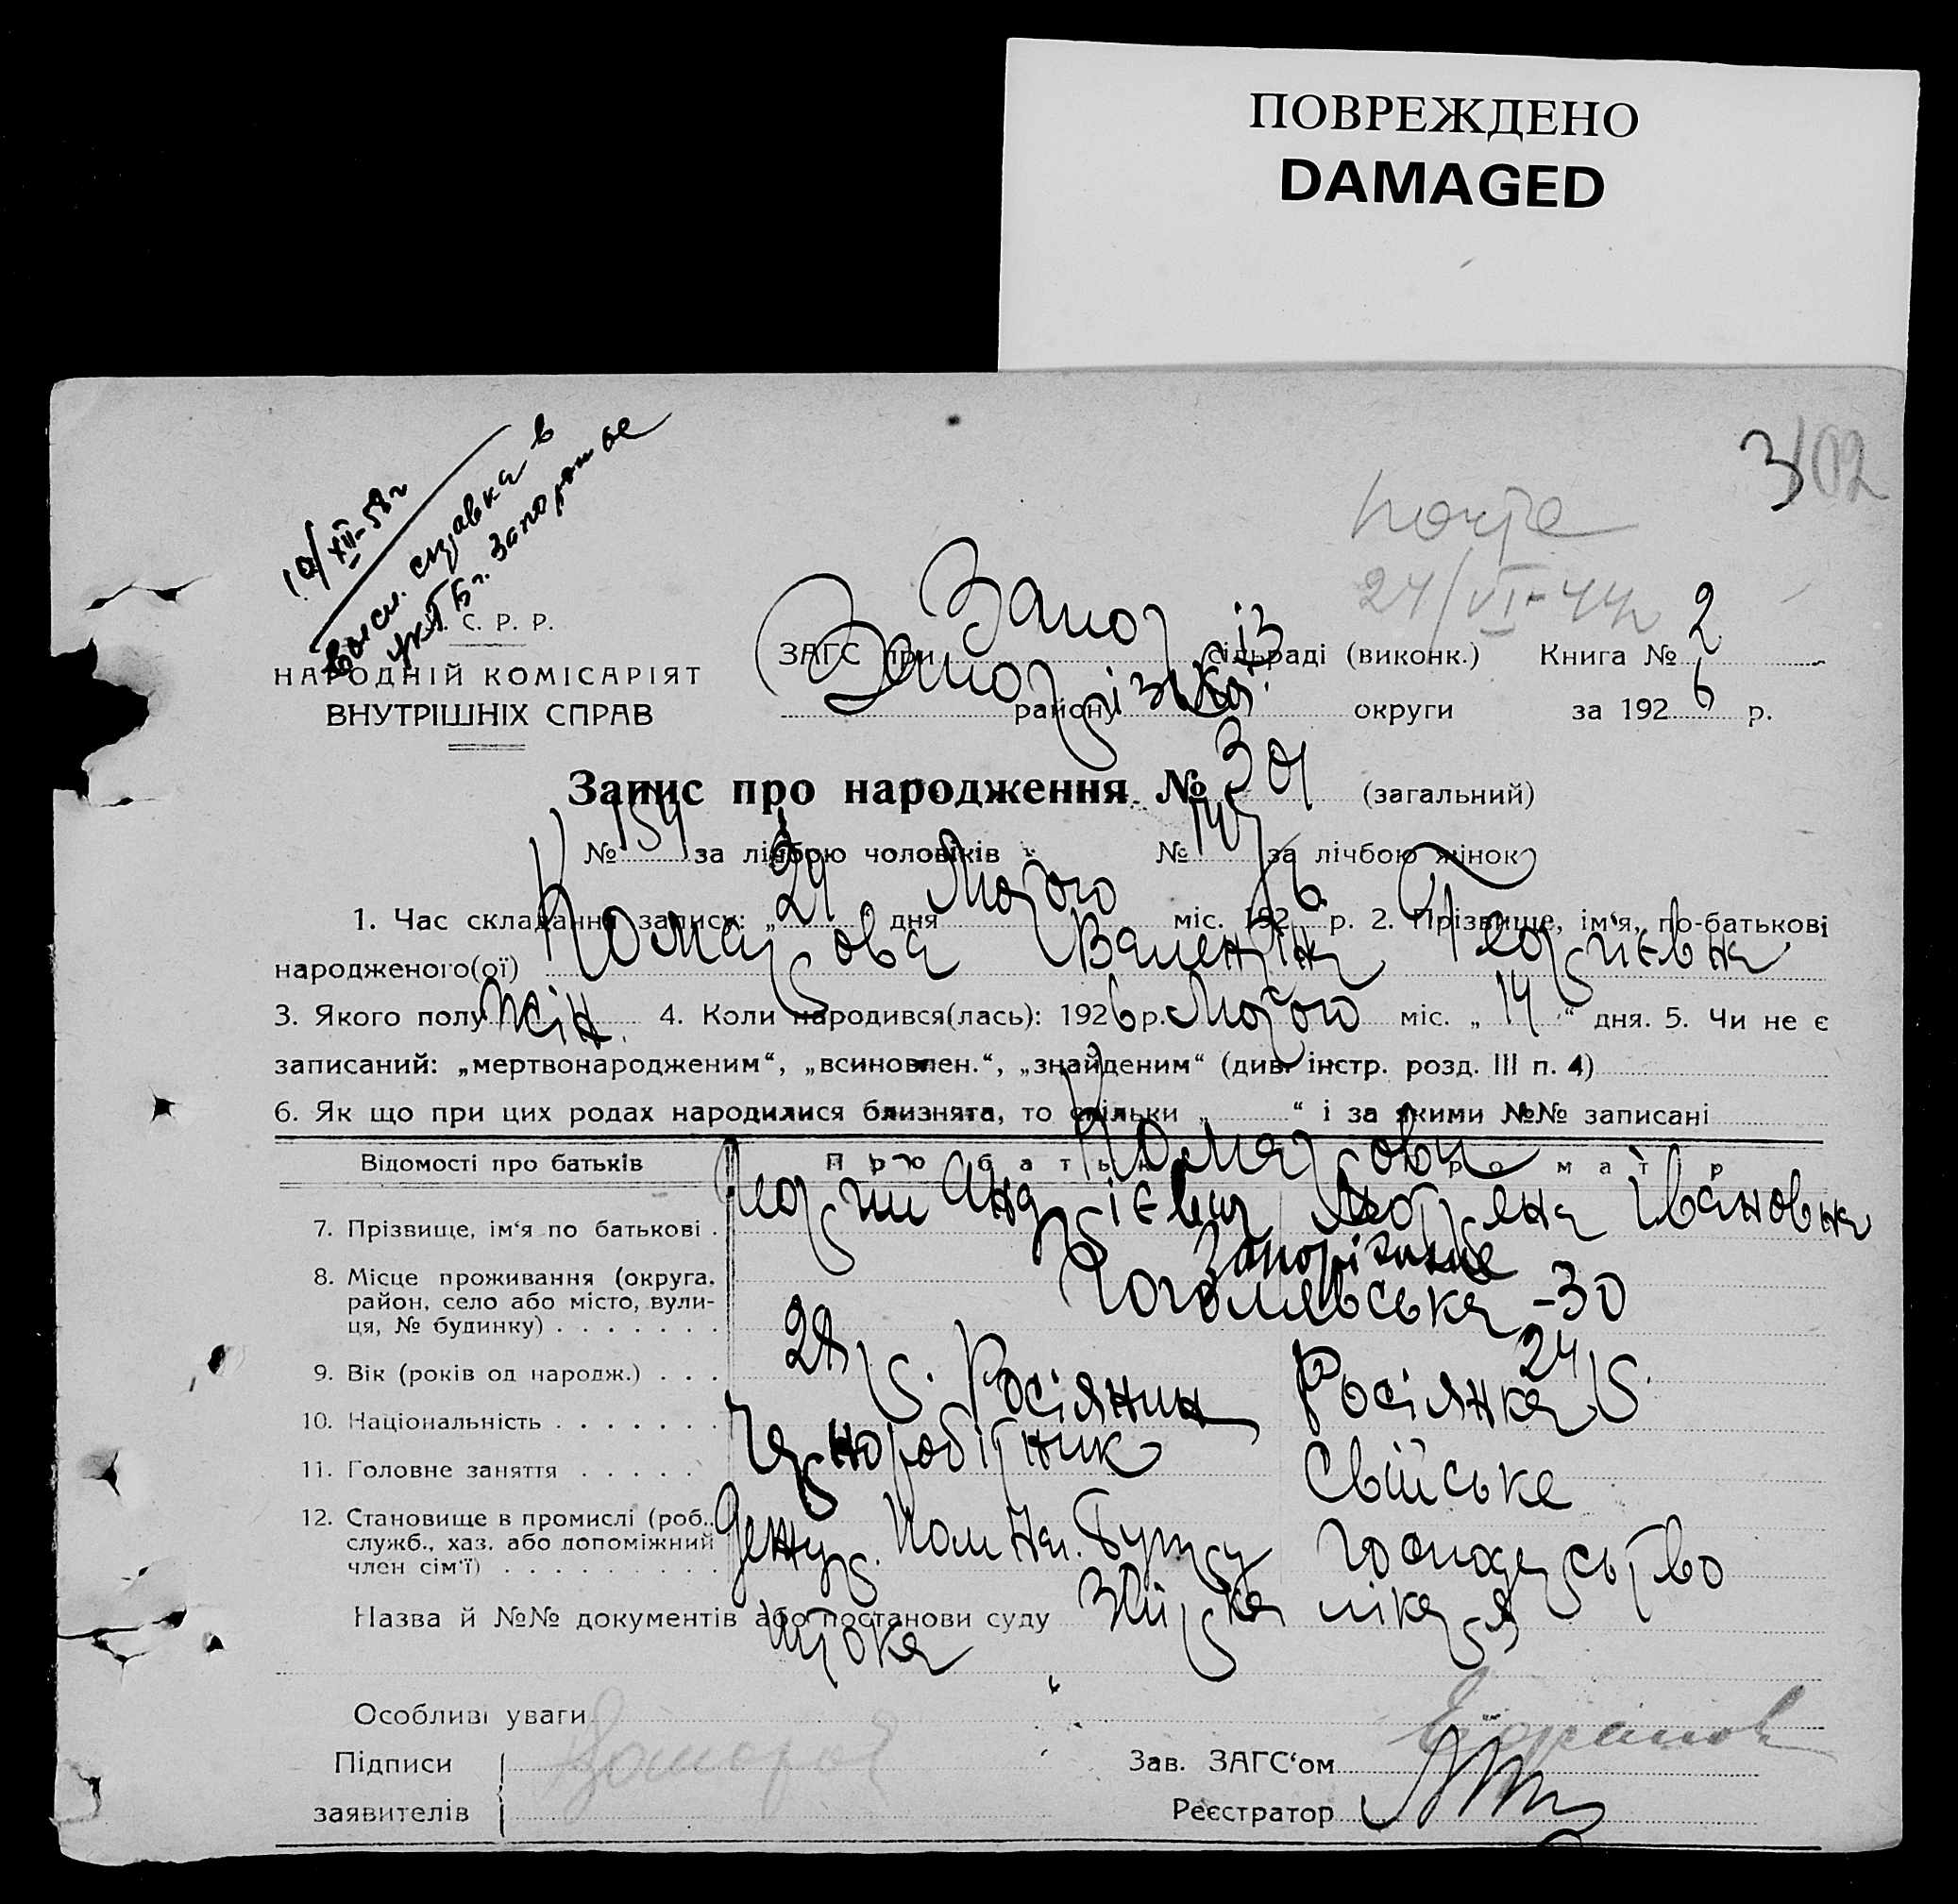 ПОВРЕЖДЕНО
DAMAGED
3102
почта
24/VI-44г
10/XII-58г
Высл. справка в
г. Запорожье
С. Р. Р.
НАРОДНІЙ КОМІСАРІЯТ
ВНУТРІШНІХ СПРАВ
ЗАГС при Запоріз сільраді (виконк.) Книга № 2
Запорізької району округи за 1926 р.
Запис про народження № 301 (загальний)
№ 154 за лічбою чоловіків № 147 за лічбою жінок
1. Час складання запису: „ 24 “ дня Лютого міс. 1926 р. 2. Прізвище, ім'я, по-батькові
народженого(ої) Комарова Валентіна Георгиєвна
3. Якого полу жін. 4. Коли народився(лась): 1926 р. Лютого міс. „ 14 “ дня. 5. Чи не є
записаний: „мертвонародженим“, „всиновлен.“, „знайденим“ (див. інстр. розд. III п. 4)
6. Як що при цих родах народилися близнята, то скільки „ “ і за якими №№ записані
Відомості про батьків Про батька Про матір
Комарови
7. Прізвище, ім'я по батькові . Георгий Андрієвич Ивановна
8. Місце проживання (округа, район, село або місто, вулиця, № будинку) . . . . . . . Запоріжжє
Гоголевська – 30
9. Вік (років од народж.) . . . 28 р. 24 р.
10. Національність . . . . . . . Росіянин Росіянка
11. Головне заняття . . . . . Чорноробітник Свійське
12. Становище в промислі (роб., служб., хаз. або допоміжний член сім'ї) . . . . . . . . . Господарство
Назва й №№ документів або постанови суду лікаря
Особливі уваги
Підписи
заявителів
Зав. ЗАГС'ом
Реєстратор